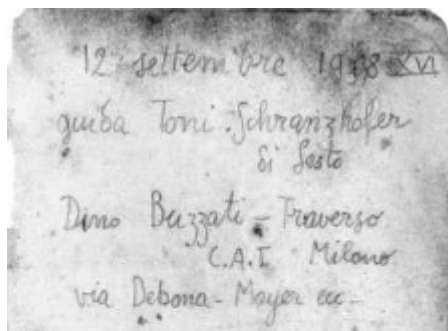 12 settembre 1938 XVI
guida Toni Schranzhofer
di Sesto
Dino Buzzati - Traverso
C.A.I. Milano
via Debona - Mayer ecc -